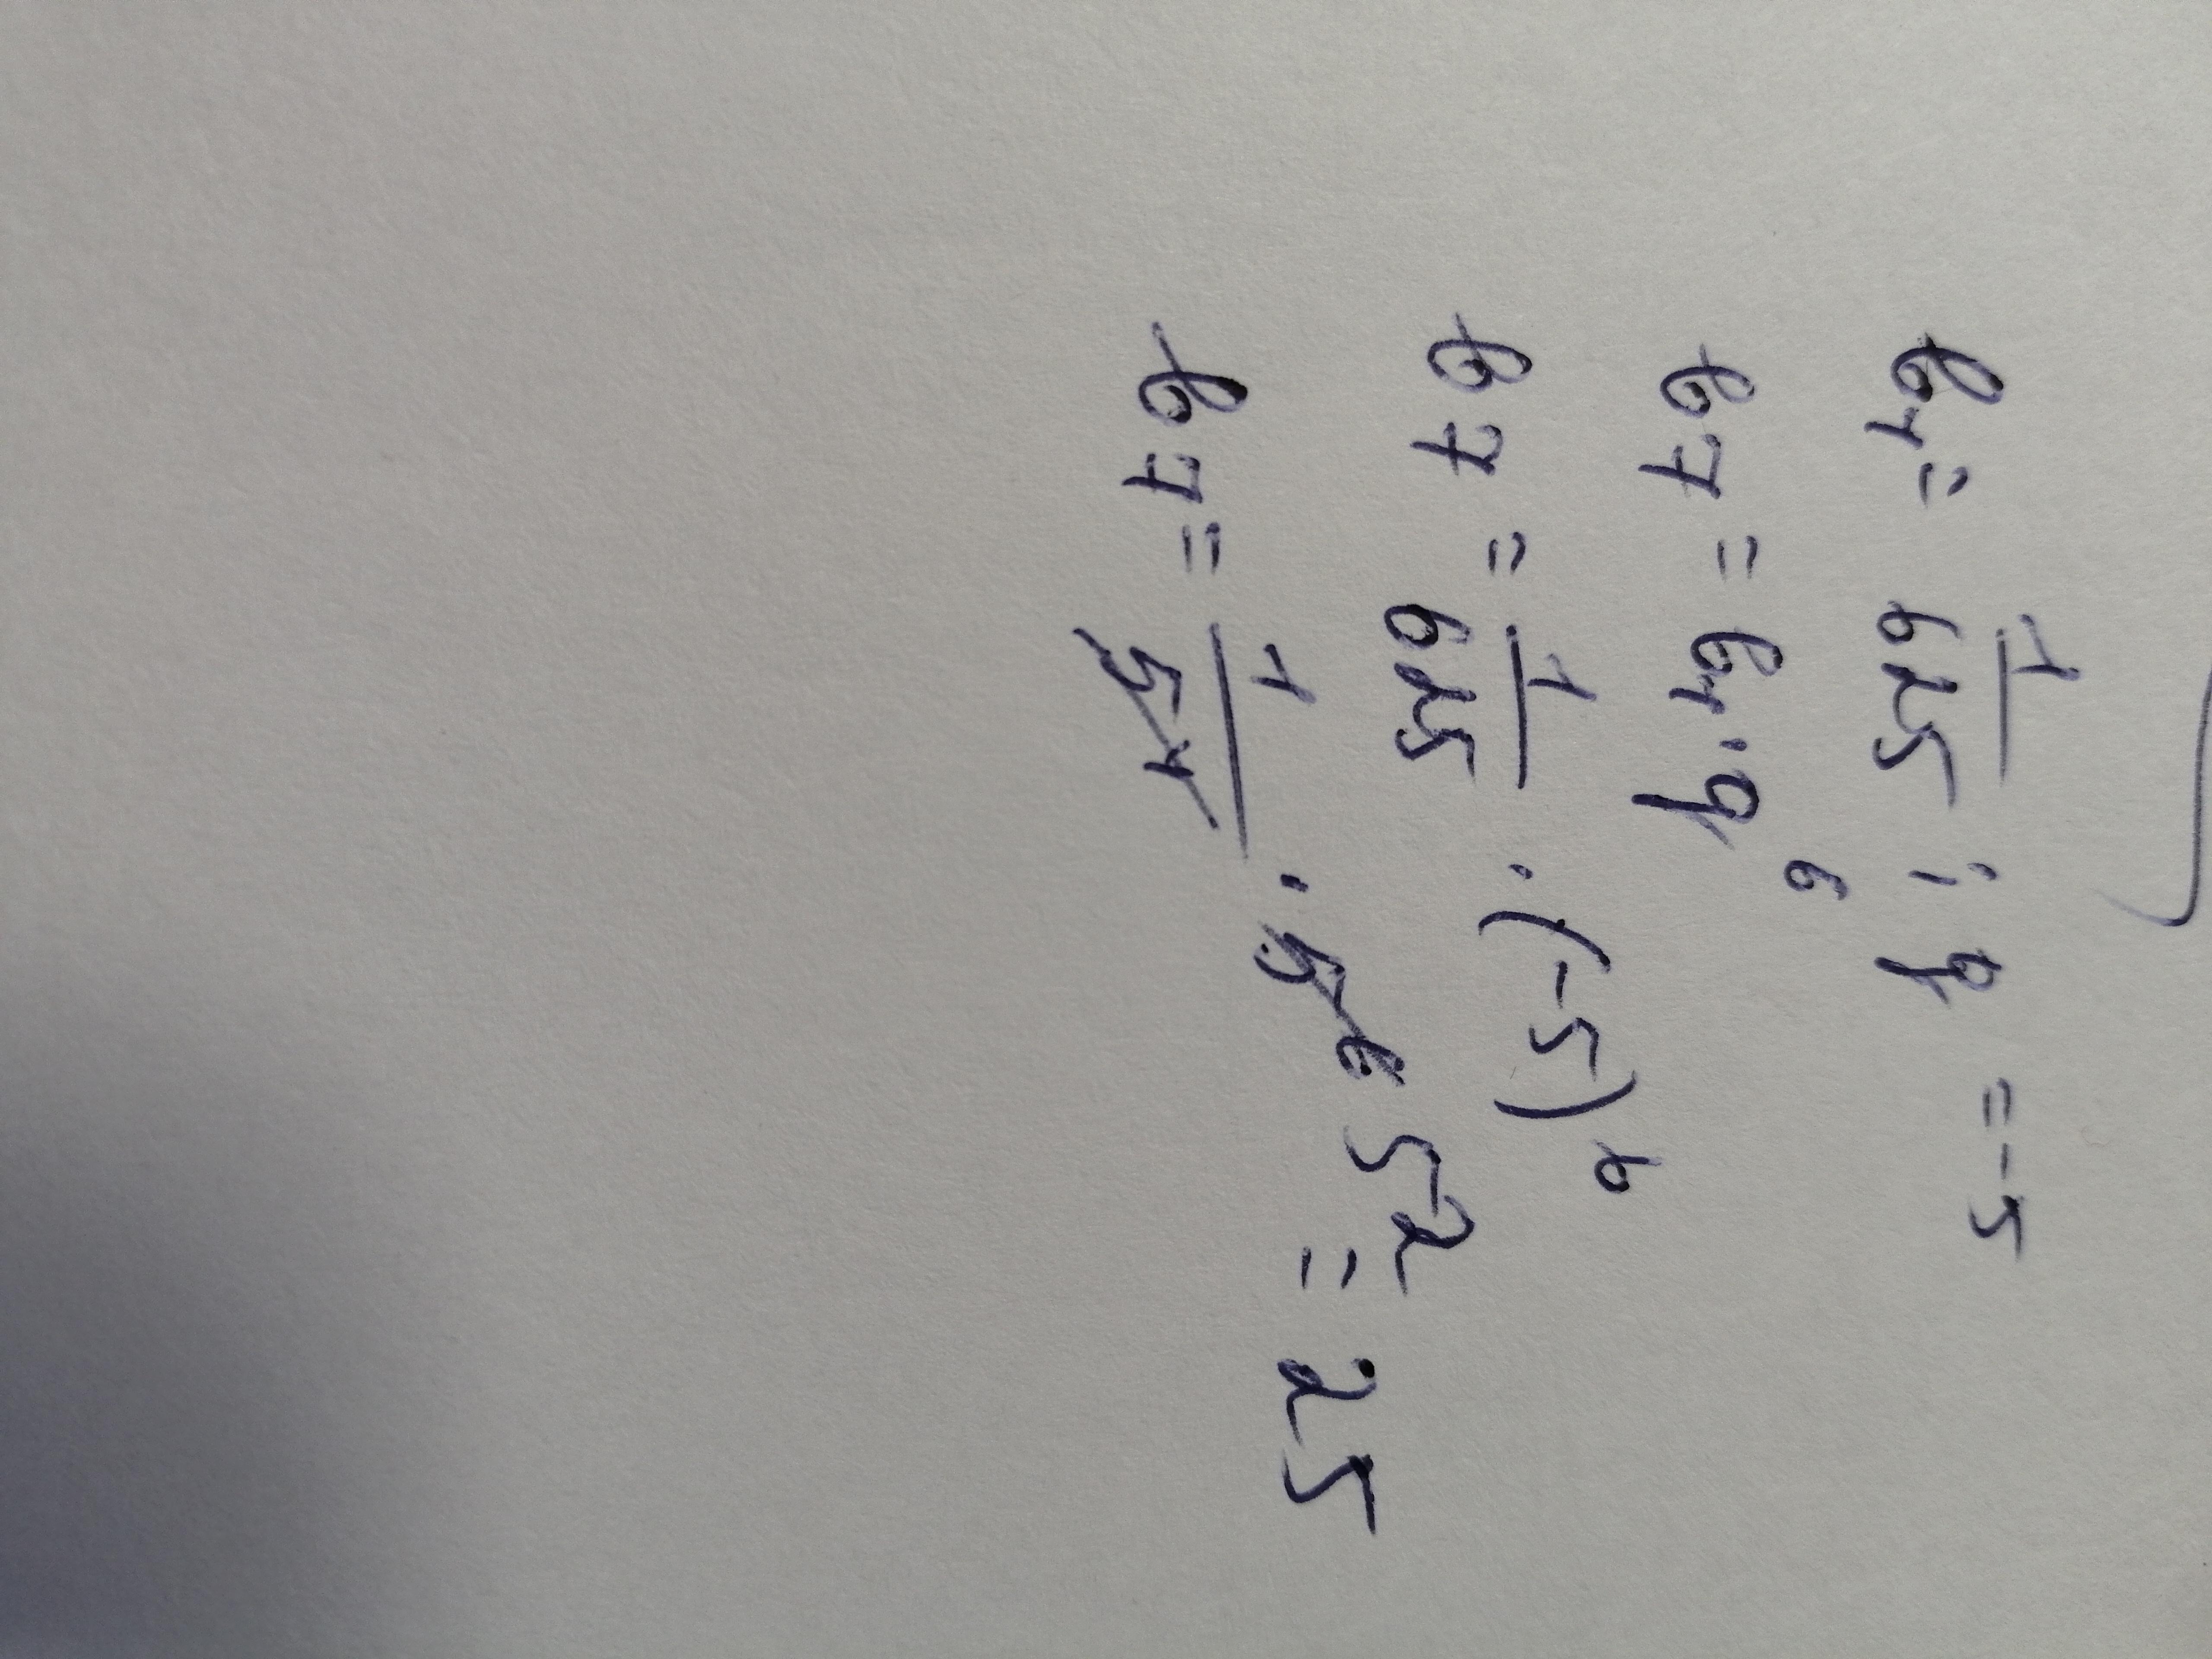 b₁ = 1/625 ; q = -5
b₇ = b₁ · q⁶
b₇ = 1/625 · (-5)⁶
b₇ = 1/5⁴ · 5⁶ 5² = 25